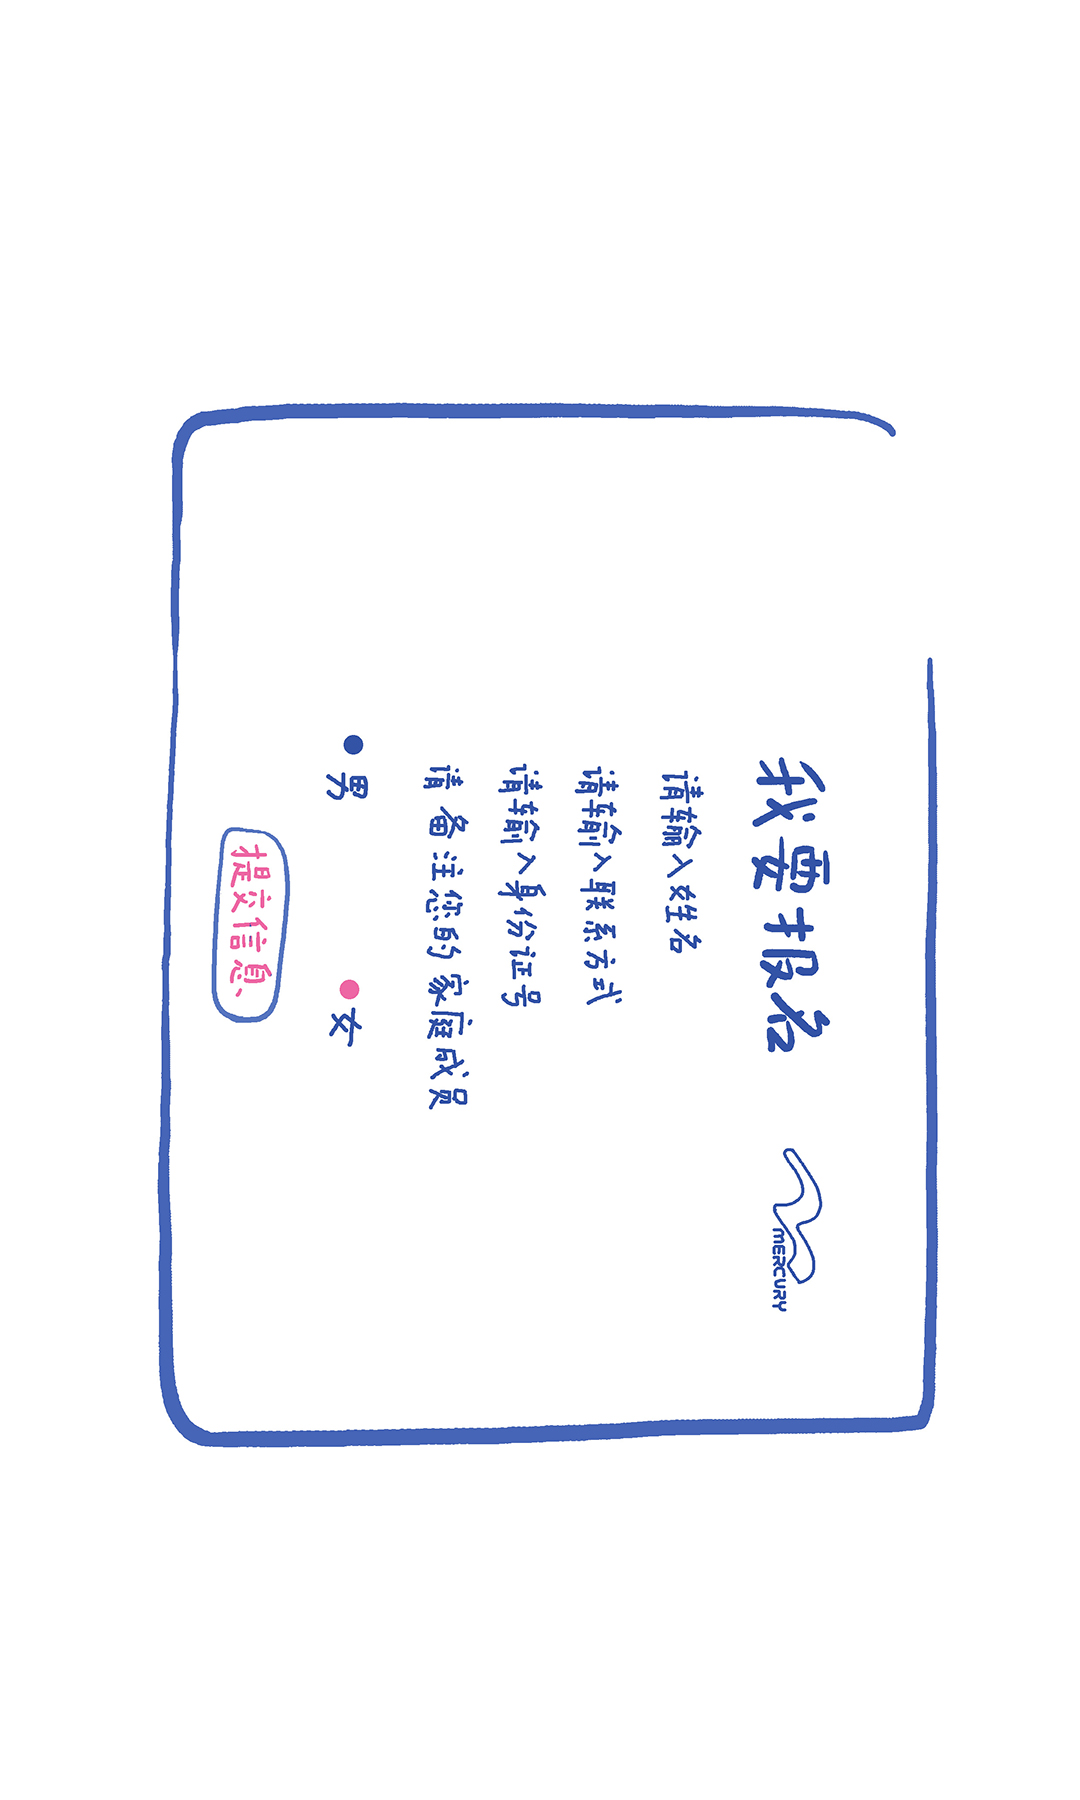 我要报名
MERCURY
请输入姓名
请输入联系方式
请输入身份证号
请备注您的家庭成员
男
女
提交信息